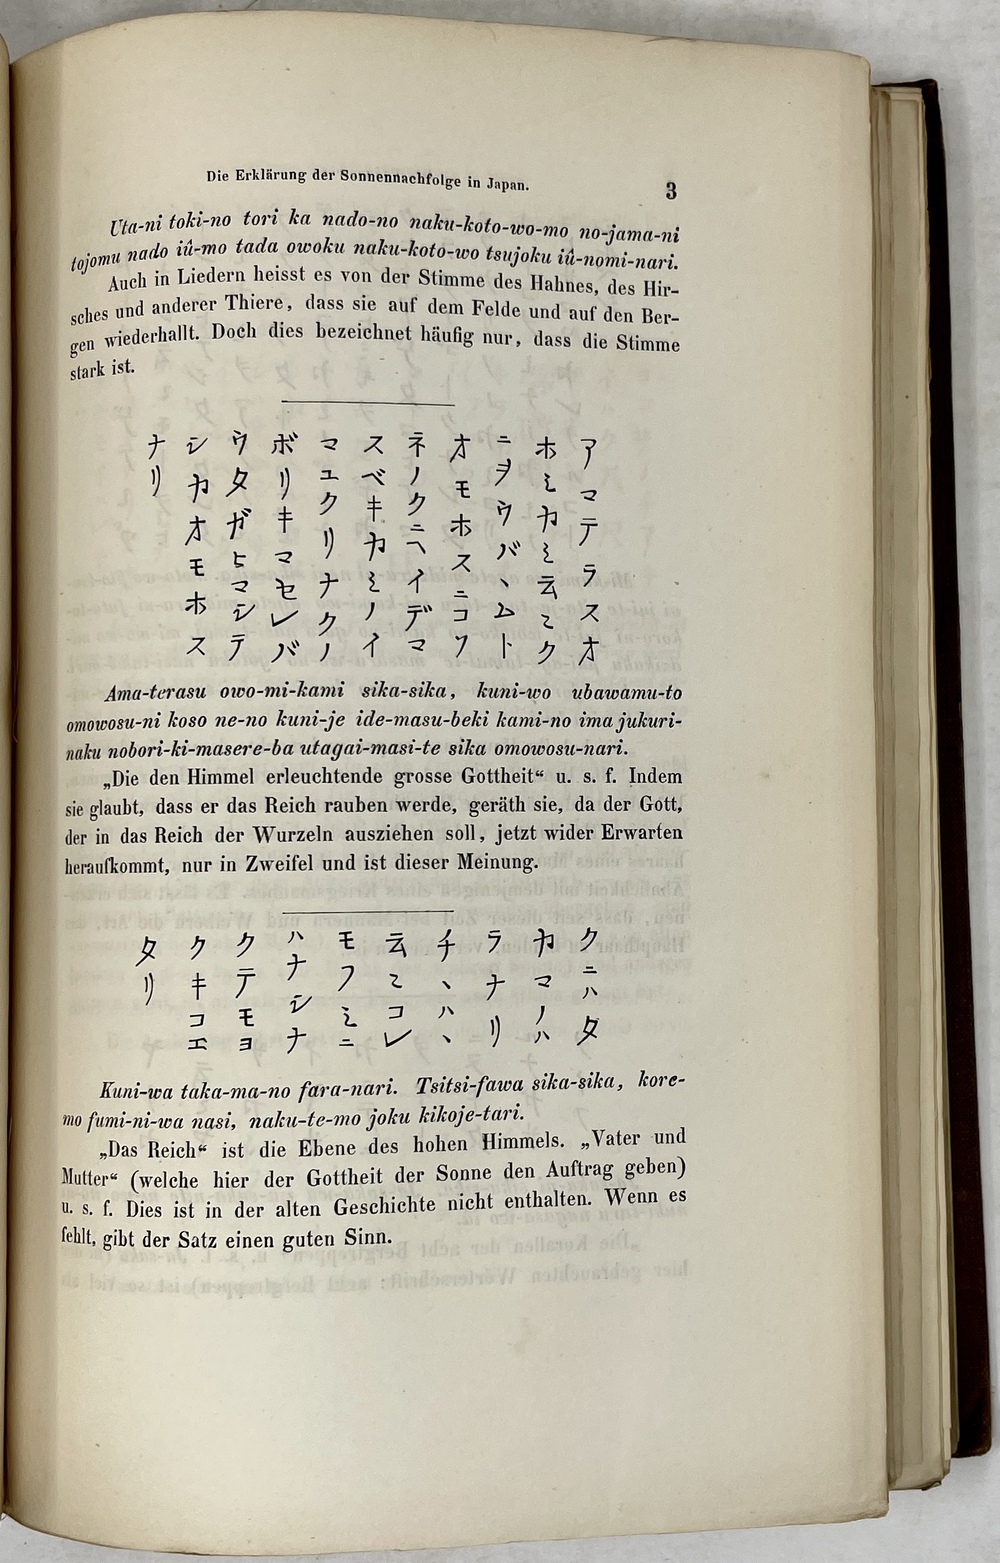 Die Erklärung der Sonnennachfolge in Japan.
3
Uta-ni toki-no tori ka nado-no naku-koto-wo-mo no-jama-ni
tojomu nado iû-mo tada owoku naku-koto-wo tsujoku iû-nomi-nari.
Auch in Liedern heisst es von der Stimme des Hahnes, des Hir-
sches und anderer Thiere, dass sie auf dem Felde und auf den Ber-
gen wiederhallt. Doch dies bezeichnet häufig nur, dass die Stimme
stark ist.
アマテラスオ
ホミカミ云々ク
ニヲウバヽムト
オモホスニコソ
ネノクニヘイデマ
スベキカミノイ
マユクリナクノ
ボリキマセレバ
ウタガヒマシテ
シカオモホス
ナリ
Ama-terasu owo-mi-kami sika-sika, kuni-wo ubawamu-to
omowosu-ni koso ne-no kuni-je ide-masu-beki kami-no ima jukuri-
naku nobori-ki-masere-ba utagai-masi-te sika omowosu-nari.
„Die den Himmel erleuchtende grosse Gottheit“ u. s. f. Indem
sie glaubt, dass er das Reich rauben werde, geräth sie, da der Gott,
der in das Reich der Wurzeln ausziehen soll, jetzt wider Erwarten
heraufkommt, nur in Zweifel und ist dieser Meinung.
クニハタ
カマノハ
ラナリ
チヽハヽ
云々コレ
モフミニ
ハナシナ
クテモヨ
クキコエ
タリ
Kuni-wa taka-ma-no fara-nari. Tsitsi-fawa sika-sika, kore-
mo fumi-ni-wa nasi, naku-te-mo joku kikoje-tari.
„Das Reich“ ist die Ebene des hohen Himmels. „Vater und
Mutter“ (welche hier der Gottheit der Sonne den Auftrag geben)
u. s. f. Dies ist in der alten Geschichte nicht enthalten. Wenn es
fehlt, gibt der Satz einen guten Sinn.